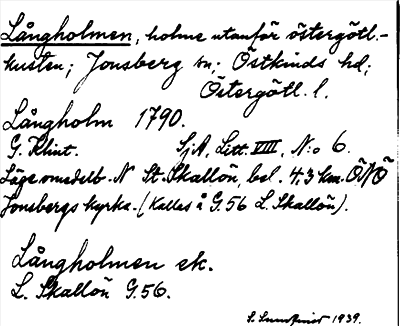 Långholmen, holme utanför östergötl.-
kusten; Jonsberg sn; Östkinds hd;
Östergötl. l.
Långholm 1790.
G. Klint. SjA, Litt. VIII, N:o 6.
Läge omedelb. N St. Skallön, bel. 4,3 km. ÖNÖ
Jonsbergs kyrka. (Kallas å G.56 L. Skallön).
Långholmen ek.
L. Skallön G.56.
S. 1939.